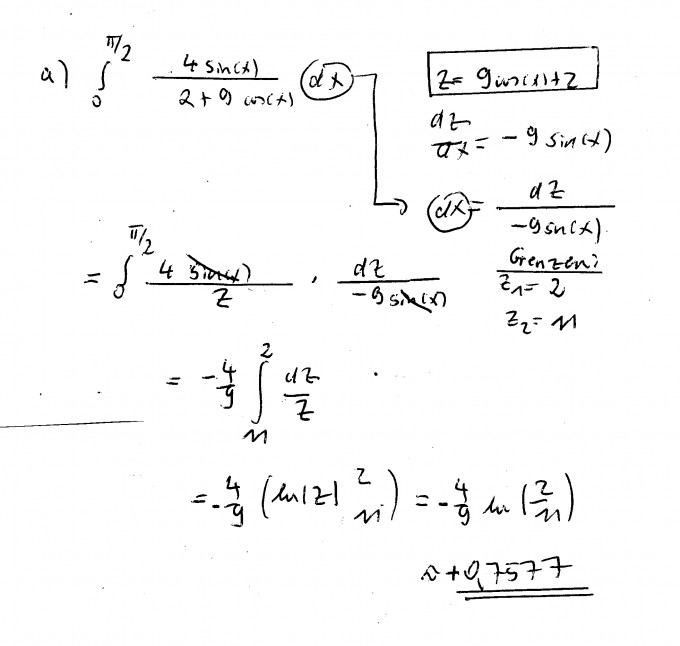 a) ∫₀^{π/2} 4 sin(x) / (2 + 9 cos(x)) dx
z = 9 cos(x) + 2
dz/dx = - 9 sin(x)
dx = dz / (-9 sin(x))
= ∫₀^{π/2} 4 sin(x) / z · dz / (-9 sin(x))
Grenzen:
z₁ = 2
z₂ = 11
= -4/9 ∫₁₁² dz/z
= -4/9 (ln|z| ²₁₁) = -4/9 ln(2/11)
≈ +0,7577